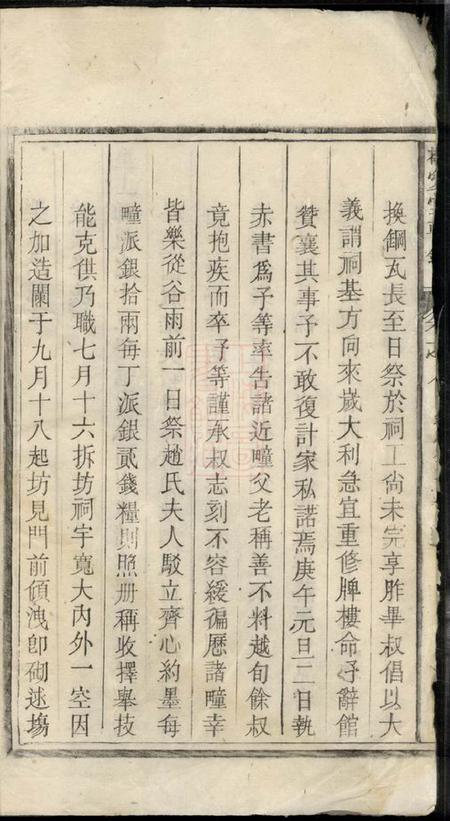 換鋼瓦長至日祭於祠工尙未完享胙畢叔倡以大
義謂祠基方向來歲大利急宜重修牌樓命予辭館
贊襄其事予不敢復計家私諾焉庚午元旦二日執
赤書爲予等率告諸近疃父老稱善不料越旬餘叔
竟抱疾而卒予等謹承叔志刻不容緩徧歷諸疃幸
皆樂從谷雨前一日祭趙氏夫人駁立齊心約墨每
疃派銀拾兩每丁派銀貳錢糧則照册稱收擇舉技
能克供乃職七月十六拆坊祠宇寬大內外一空因
之加造闌于九月十八起坊見門前傾洩卽砌逑塲